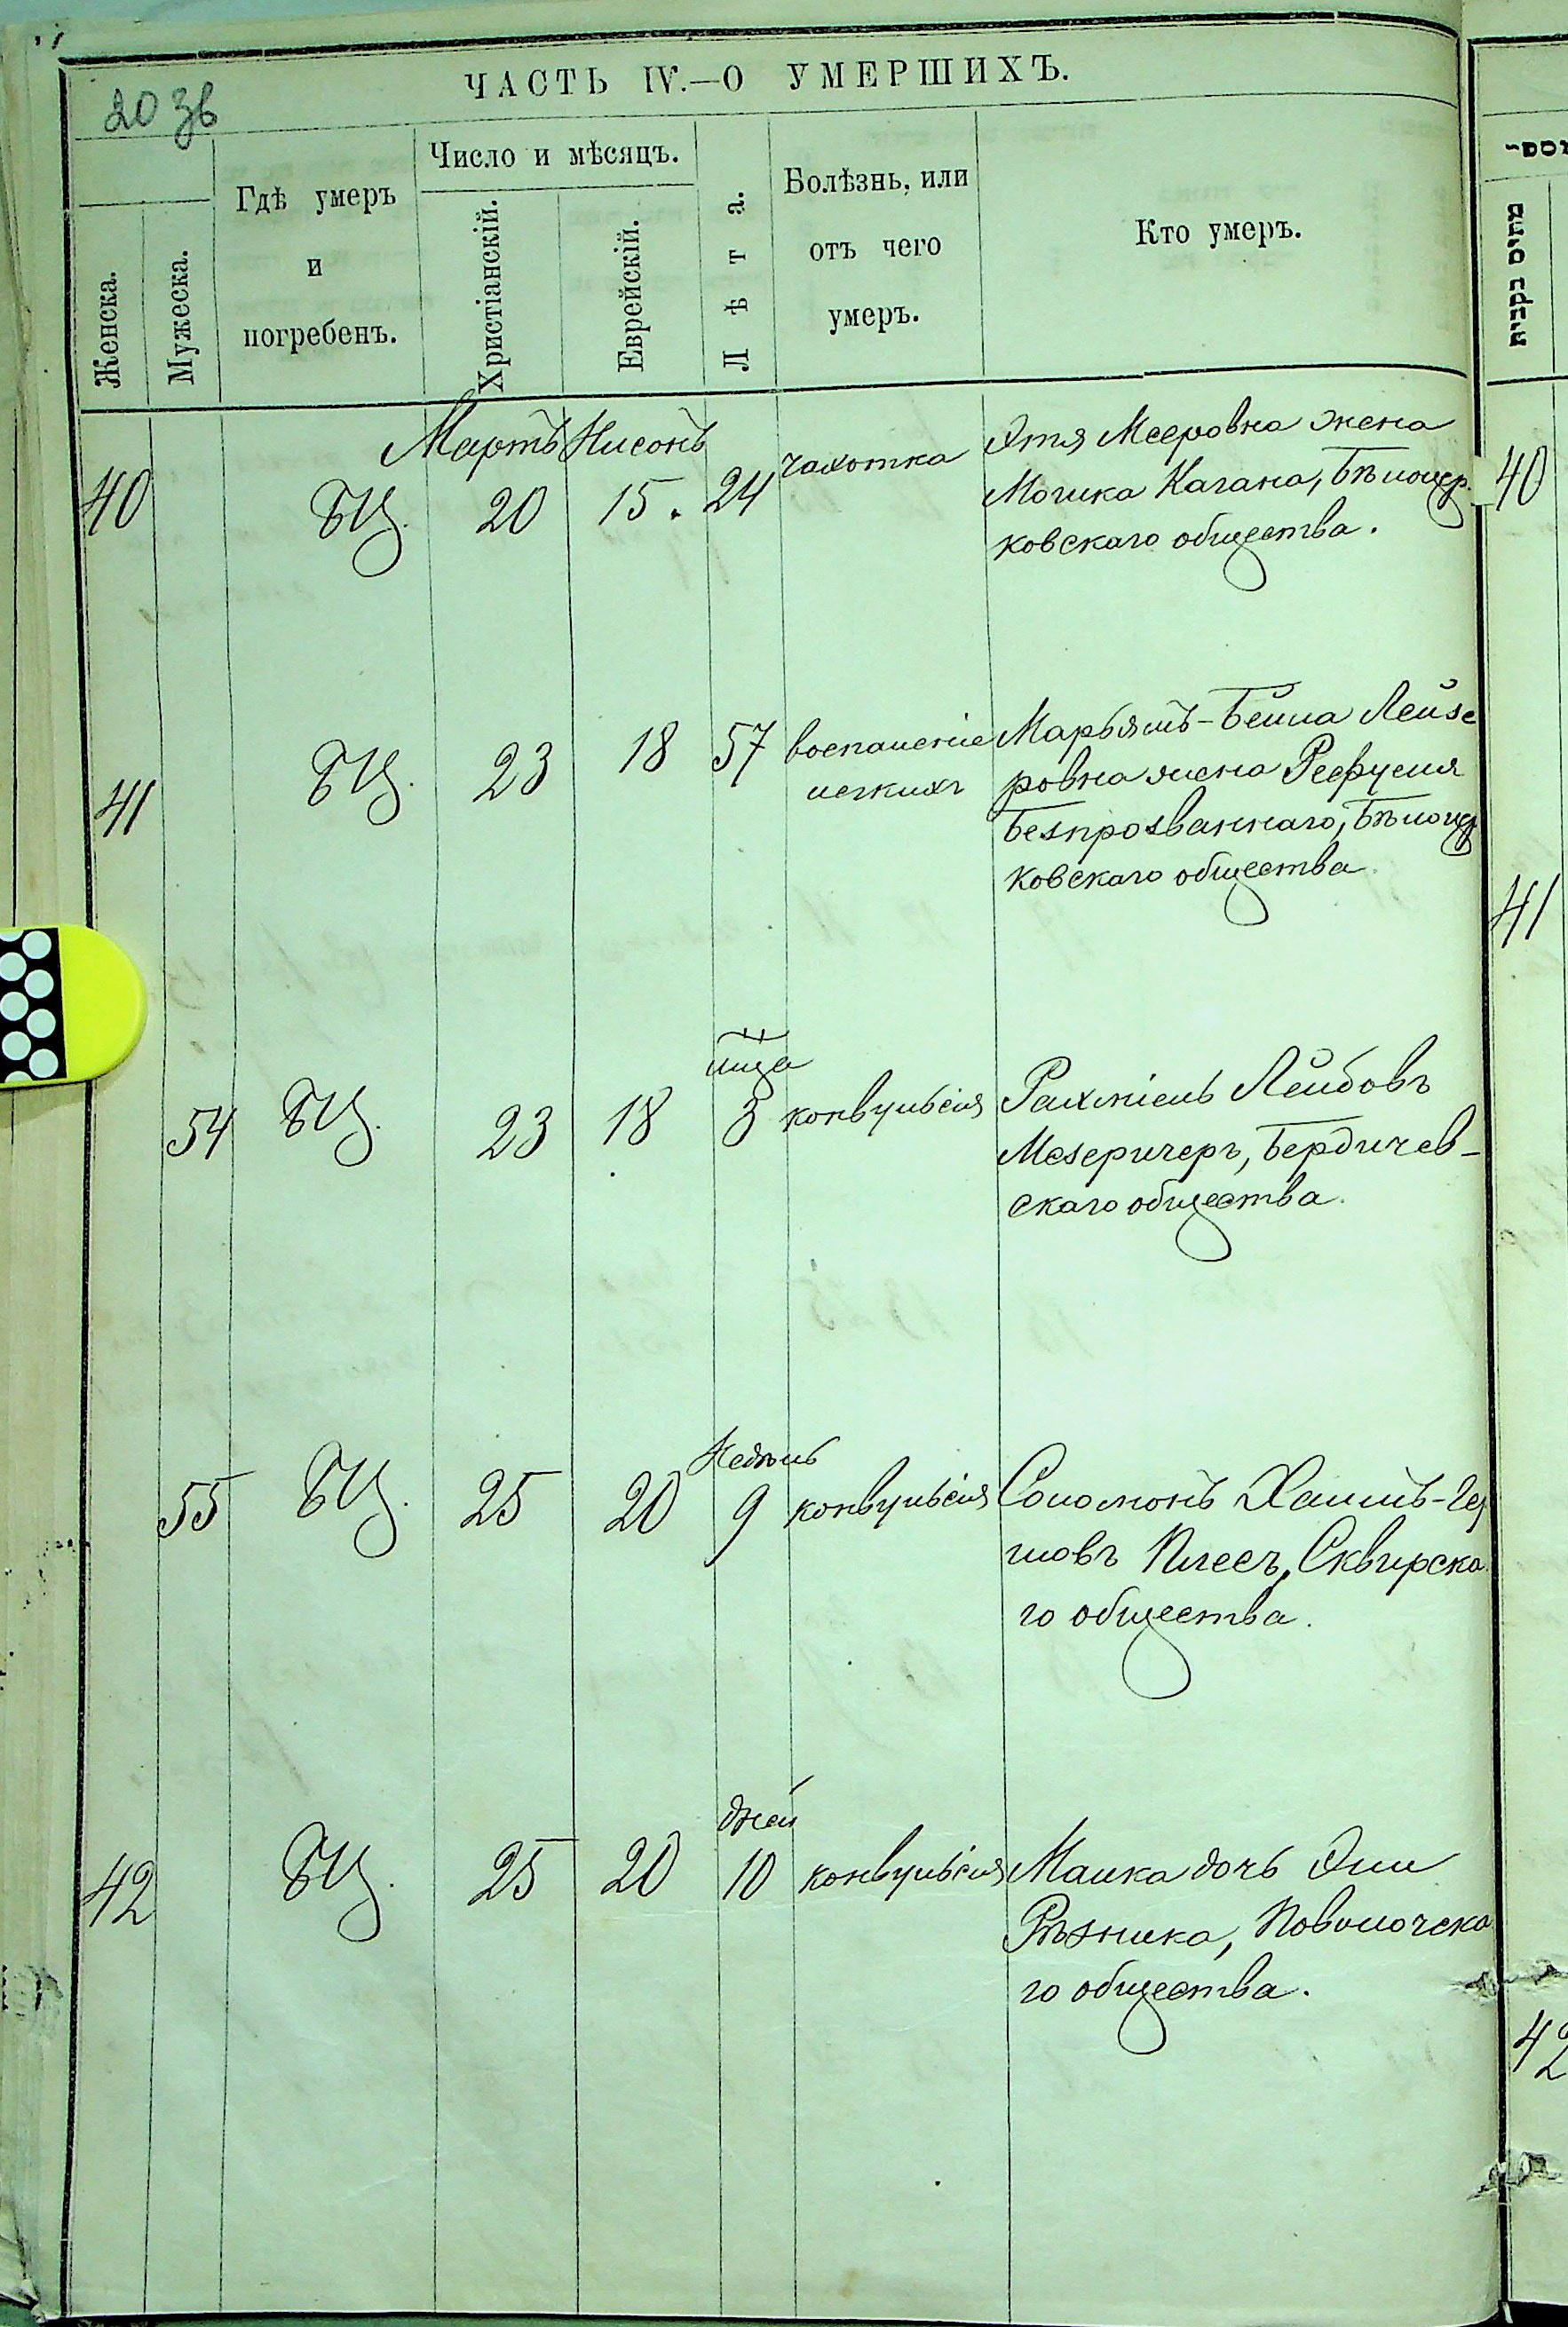 20 зв
ЧАСТЬ IV.—О УМЕРШИХЪ.
Женска.
Мужеска.
Гдѣ умеръ
и
погребенъ.
Число и мѣсяцъ.
Христіанскій.
Еврейскій.
Лѣта.
Болѣзнь, или
отъ чего
умеръ.
Кто умеръ.
Мартъ Нисонъ
40 БЦ. 20 15. 24 чахотка Этя Мееровна жена
Мошка Кагана, Бѣлоцер.
ковскаго общества.
40
41 БЦ. 23 18 57 воспаленіе легкихъ Марьямъ-Бейла Лейзе
ровна жена Рефуеля
Безпрозваннаго, Бѣлоцер
ковскаго общества.
41
54 БЦ. 23 18 м-ца 3 конвульсія Рахміель Лейбовъ
Мезеричеръ, Бердичев-
скаго общества.
55 БЦ. 25 20 Недѣль 9 конвульсія Соломонъ Хаимъ-Гер
шовъ Плесъ, Сквирска
го общества.
42 БЦ. 25 20 дней 10 конвульсія Малка дочь Эли
Рѣзника, Поволочска
го общества.
42